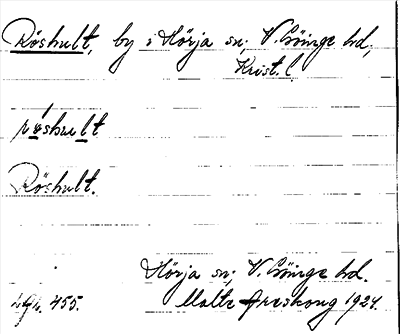 Röshult, by i Hörja sn; V. Göinge hd,
Krist. l.
röshult
Röshult.
Hörja sn; V. Göinge hd.
455. Malte 1924.